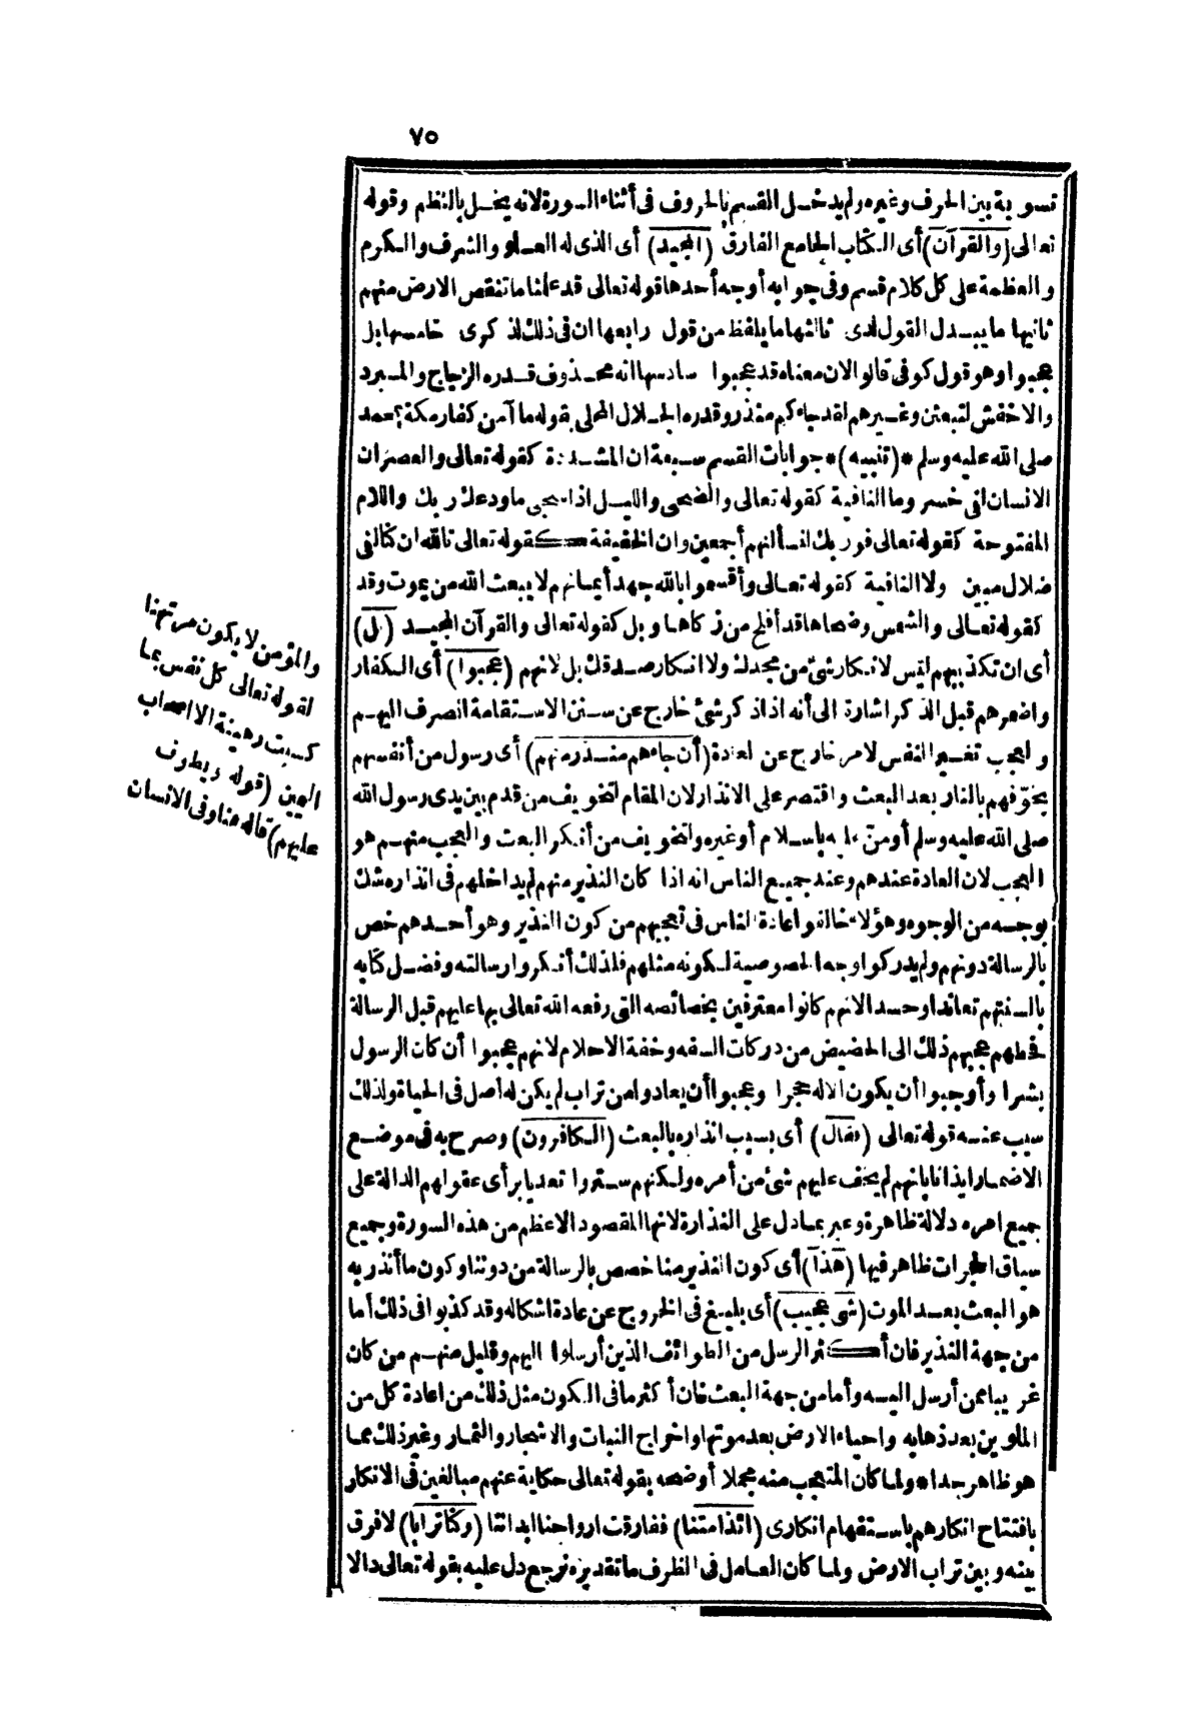 ٧٥
تسوية بين الحرف وغيره ولم يدخل القسم بالحروف فى أثناء السورة لانه يخل بالنظم وقوله
تعالى (والقرآن) أى الكتاب الجامع الفارق (المجيد) أى الذى له العلو والشرف والكرم
والعظمة على كل كلام قسم وفى جوابه أوجه أحدها قوله تعالى قد علمنا ما تنقص الارض منهم
ثانيها ما يبدل القول لدى ثالثها ما يلفظ من قول رابعها ان فى ذلك لذكرى خامسها بل
عجبوا وهو قول كوفى قالوا لان معناه قد عجبوا سادسها انه محذوف قدره الزجاج والمبرد
والاخفش لتبعثن وغيرهم لقد جاءكم منذر وقدره الجلال المحلى بقوله ما آمن كفار مكة بمحمد
صلى الله عليه وسلم *(تنبيه)* جوابات القسم سبعة ان المشددة كقوله تعالى والعصر ان
الانسان لفى خسر وما النافية كقوله تعالى والضحى والليل اذا سجى ما ودعك ربك واللام
المفتوحة كقوله تعالى فوربك لنسألنهم أجمعين وان الخفيفة كقوله تعالى تالله ان كنا لفى
ضلال مبين ولا النافية كقوله تعالى وأقسموا بالله جهد أيمانهم لا يبعث الله من يموت وقد
كقوله تعالى والشمس وضحاها قد أفلح من زكاها وبل كقوله تعالى والقرآن المجيد (بل)
أى ان تكذيبهم ليس لانكار شئ من مجدك ولا انكار صدقك بل لانهم (عجبوا) أى الكفار
واضمرهم قبل الذكر اشارة الى أنه اذا ذكر شئ خارج عن سنن الاستقامة انصرف اليهم
والعجب تغير النفس لامر خارج عن العادة (أن جاءهم منذر منهم) أى رسول من أنفسهم
يخوّفهم بالنار بعد البعث واقتصر على الانذار لان المقام لتخويف من قدم بين يدى رسول الله
صلى الله عليه وسلم أو منّ عليه باسلام أو غيره وتخويف من أنكر البعث والعجب منهم هو
العجب لان العادة عندهم وعند جميع الناس انه اذا كان النذير منهم لم يداخلهم فى انذاره شك
بوجه من الوجوه وهؤلاء خالفوا عادة الناس فى تعجبهم من كون النذير وهو أحدهم خص
بالرسالة دونهم ولم يدركوا وجه الخصوصية لكونه مثلهم فلذلك أنكروا رسالته وفضل كتابه
بالسنتهم تعاندا وحسدا لانهم كانوا معترفين بخصائصه التى رفعه الله تعالى بها عليهم قبل الرسالة
فحطهم عجبهم ذلك الى الحضيض من دركات السفه وخفة الاحلام لانهم عجبوا أن كان الرسول
بشرا وأوجبوا أن يكون الاله حجرا وعجبوا أن يعادوا من تراب لم يكن له أصل فى الحياة ولذلك
سبب عنه قوله تعالى (فقال) أى بسبب انذاره بالبعث (الكافرون) وصرح به فى موضع
الاضمار ايذانا بانهم لم يخف عليهم شئ من أمره ولكنهم ستروا تعديا برأى عقولهم الدالة على
جميع امره دلالة ظاهرة وعبر بما دل على النذارة لانها المقصود الاعظم من هذه السورة وجميع
سياق الحجرات ظاهر فيها (هذا) أى كون النذير منا خصص بالرسالة من دوننا وكون ما أنذر به
هو البعث بعد الموت (شئ عجيب) أى بليغ فى الخروج عن عادة اشكاله وقد كذبوا فى ذلك أما
من جهة النذير فان أكثر الرسل من الطوائف الذين أرسلوا اليهم وقليل منهم من كان
غريبا ممن أرسل اليه وأما من جهة البعث فان أكثر ما فى الكون مثل ذلك من اعادة كل من
الملوين بعد ذهابه واحياء الارض بعد موتها واخراج النبات والاشجار والثمار وغير ذلك مما
هو ظاهر جدا * ولما كان المتعجب منه مجملا أوضحه بقوله تعالى حكاية عنهم مبالغين فى الانكار
بافتتاح انكارهم باستفهام انكارى (ائذا متنا) ففارقت ارواحنا ابداننا (وكنا ترابا) لا فرق
بينه وبين تراب الارض ولما كان العامل فى الظرف ما تقديره نرجع دل عليه بقوله تعالى دالا
والمؤمن لا يكون مرتهنا
لقوله تعالى كل نفس بما
كسبت رهينة الا اصحاب
اليمين (قوله ويطوف
عليهم) قاله هنا وفى الانسان